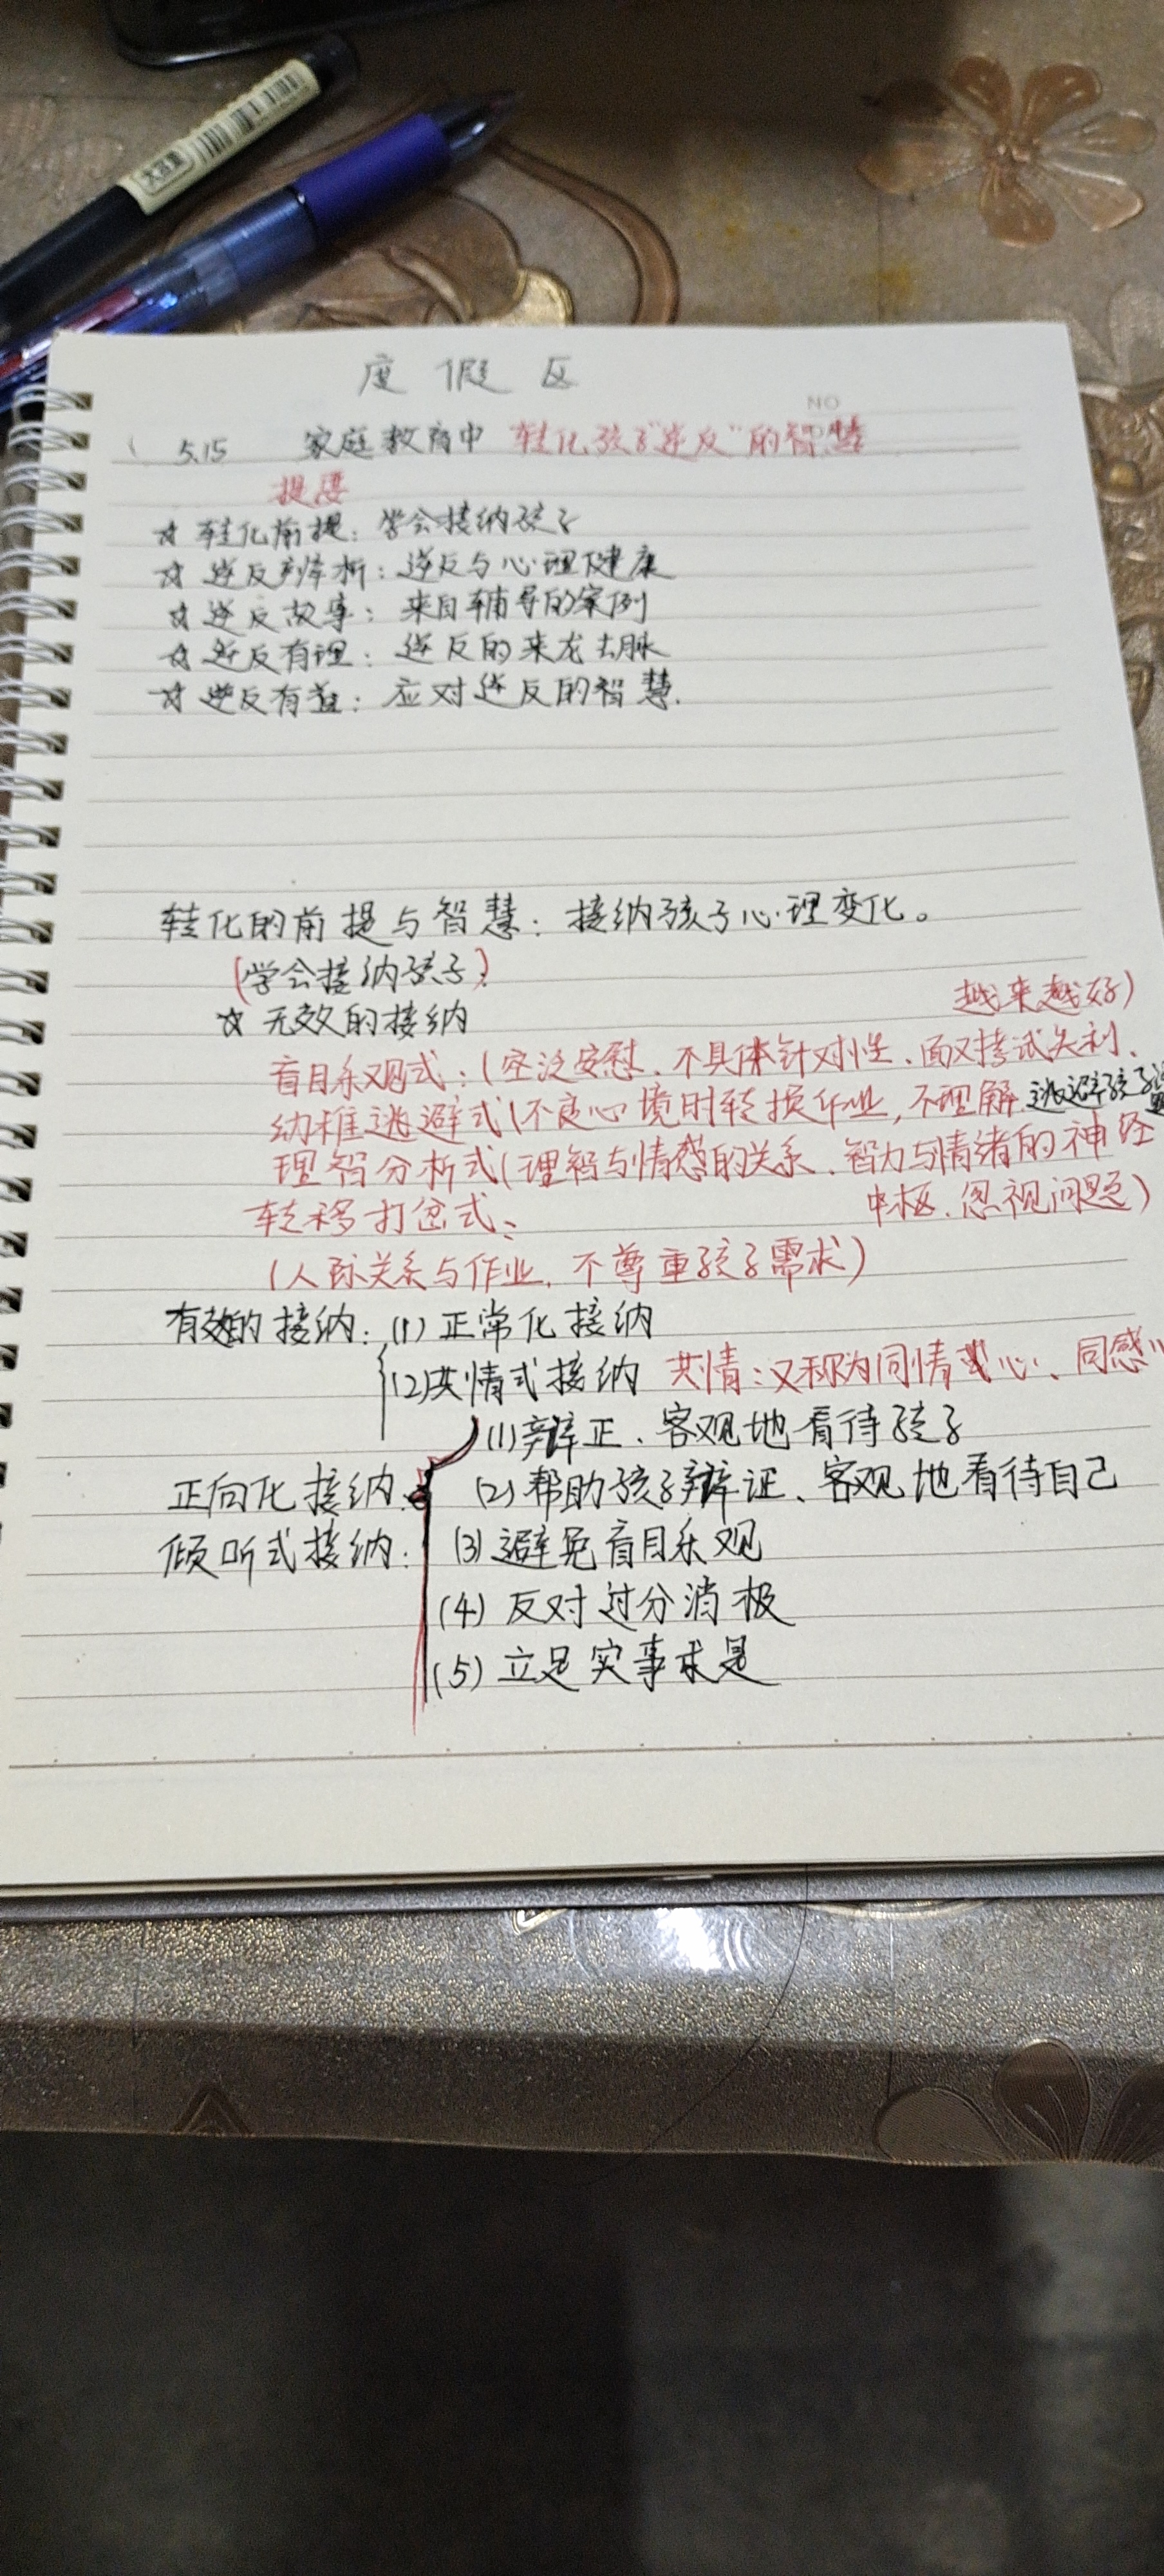 大容量
度假区
NO
5.15 家庭教育中 转化孩子"逆反"的智慧
提要
☆ 转化前提：学会接纳孩子
☆ 逆反辨析：逆反与心理健康
☆ 逆反故事：来自辅导的案例
☆ 逆反有理：逆反的来龙去脉
☆ 逆反有道：应对逆反的智慧.
转化的前提与智慧：接纳孩子心理变化。
(学会接纳孩子)
☆ 无效的接纳
越来越好)
盲目乐观式：(空泛安慰、不具体针对性、面对考试失利、
幼稚逃避式(不良心境时转换作业，不理解、逃避孩子
理智分析式(理智与情感的关系、智力与情绪的神经
转移打岔式、 中枢、忽视问题)
(人际关系与作业，不尊重孩子需求)
有效的接纳：(1)正常化接纳
(2)共情式接纳 共情：又称为同情心、同感
(1)辩正、客观地看待孩子
正向化接纳 (2)帮助孩子辩证、客观地看待自己
倾听式接纳： (3)避免盲目乐观
(4)反对过分消极
(5)立足实事求是